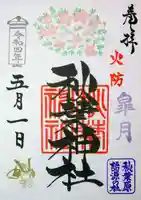 奉拝
火防
皐月
秋葉神社
令和四年
五月一日
秋葉原